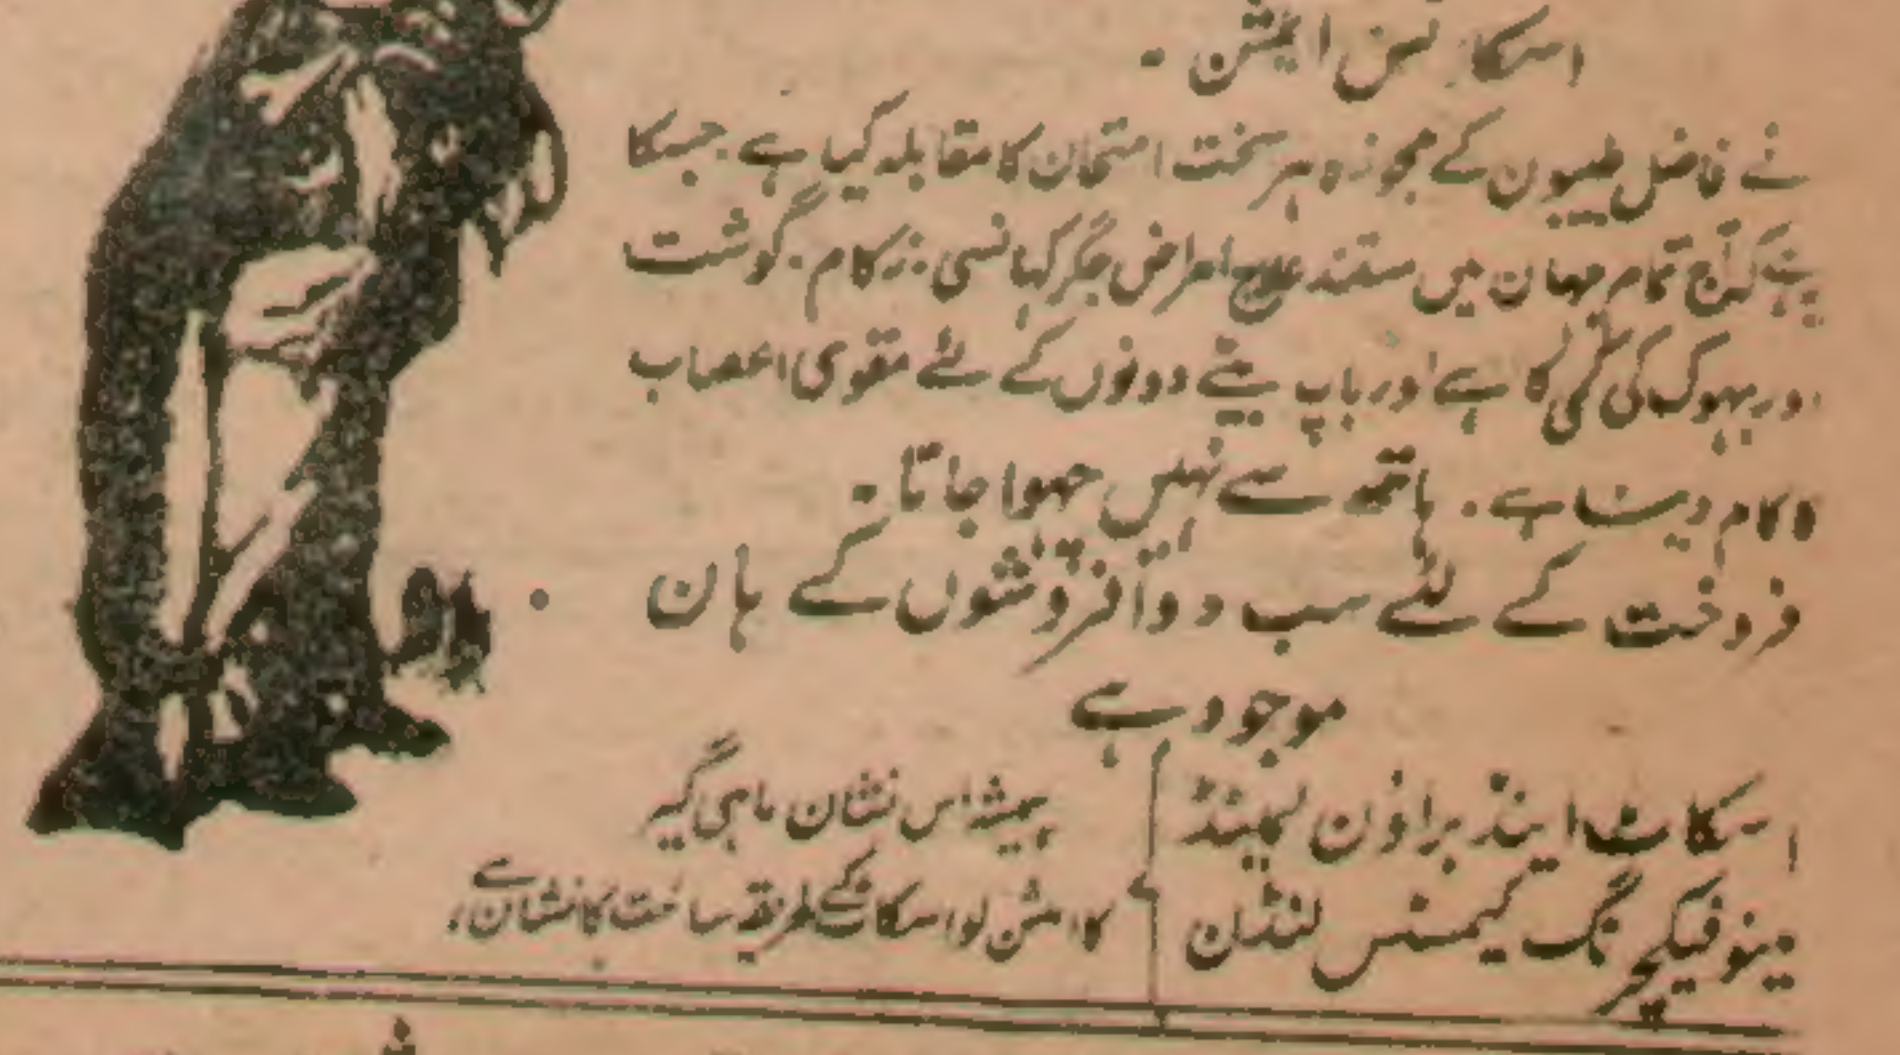 اسکاٹس ایمشن -
نے فاضل طبیبون کے مجوزہ ہر سخت امتحان کا مقابلہ کیا ہے جسکا
آج تمام جہان میں مستند علاج امراض جگر کہانسی . زکام . گوشت
اور بہوک کی کمی کا ہے اور باپ بیٹے دونوں کے لئے مقوی اعصاب
کا کام دیتا ہے . ہاتھ سے نہیں چہوا جاتا -
فروخت کے لئے سب دوا فروشوں کے ہان
موجود ہے
اسکاٹ اینڈ براؤن لمیٹڈ
مینوفیکچرنگ کیمسٹس لنڈن
ہمیشہ اس نشان ماہی گیر
کا امشن لو اسکاٹ کے طریقہ ساخت کا نشان ہے